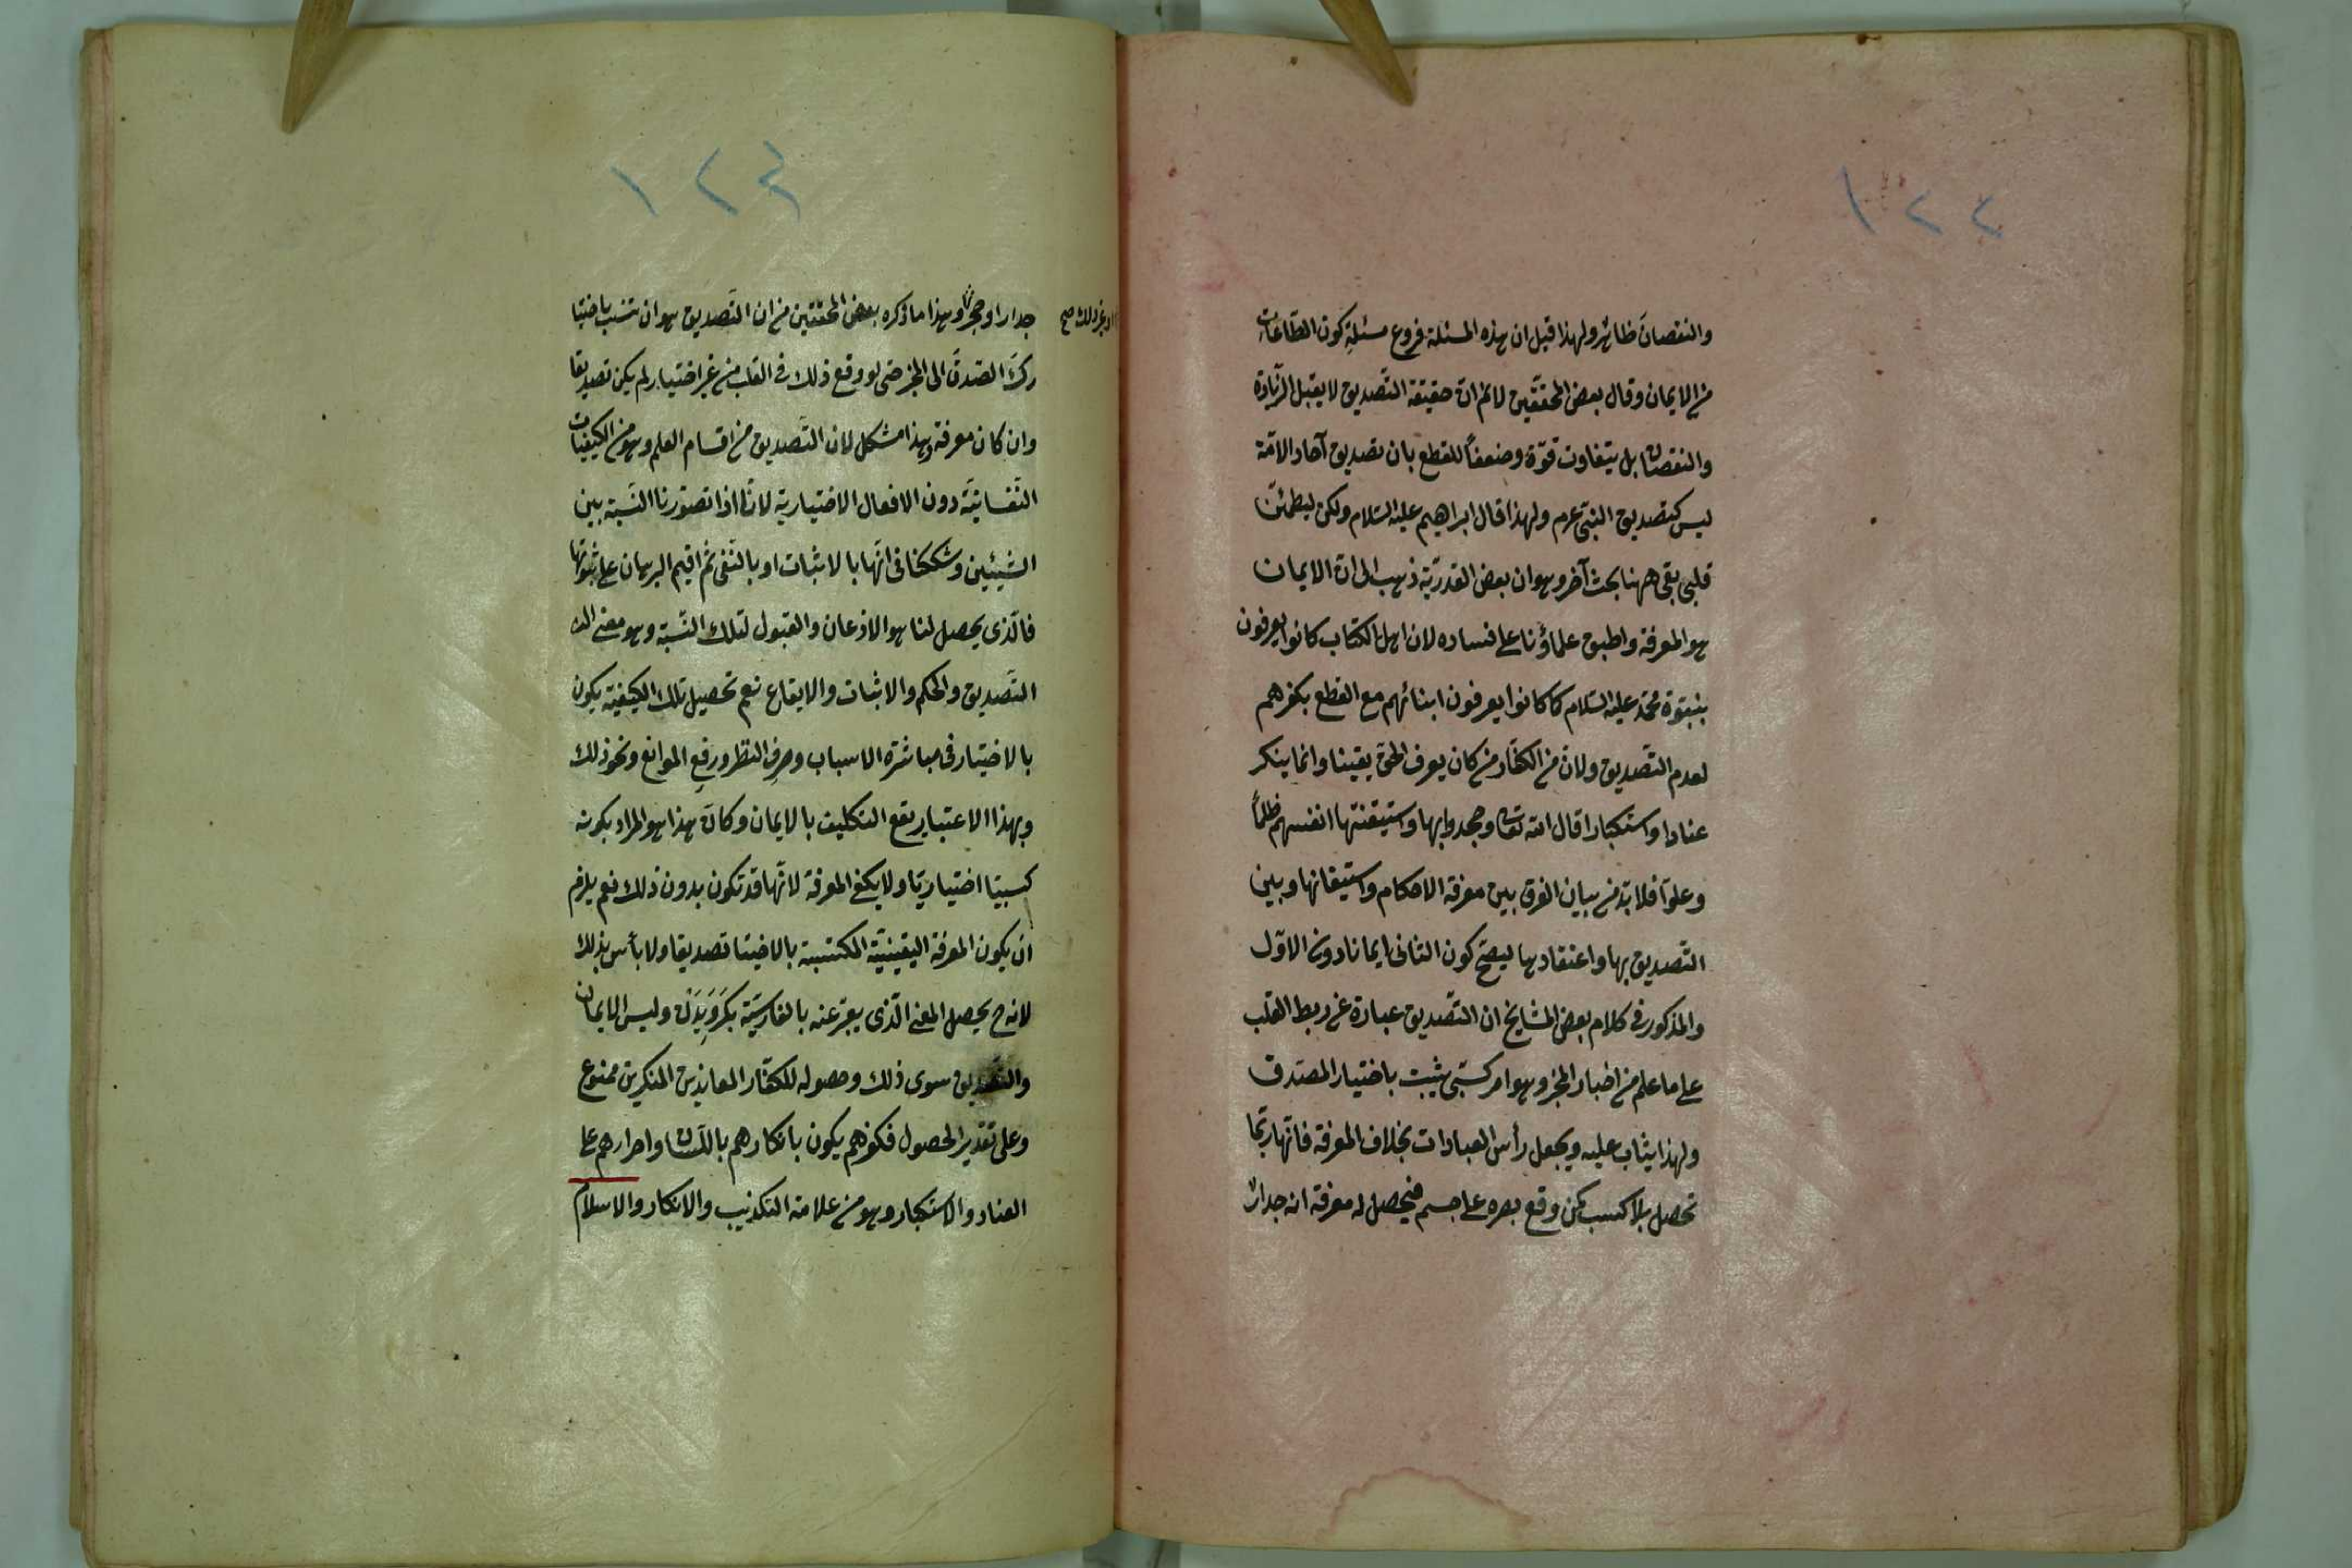 ١٢٣
والنقصان ظاهر ولهذا قيل ان هذه المسئلة فروع مسئلة كون الطاعات
من الايمان وقال بعض المحققين لا نم ان حقيقة التصديق لا يقبل الزيادة
والنقصان بل يتفاوت قوة وضعفا للقطع بان تصديق آحاد الامة
ليس كتصديق النبي عرم ولهذا قال ابراهيم عليه السلام ولكن ليطمئن
قلبي بقى ههنا بحث آخر وهو ان بعض القدرية ذهب الى ان الايمان
هو المعرفة واطبق علماؤنا على فساده لان اهل الكتاب كانوا يعرفون
بنبوة محمد عليه السلام كما كانوا يعرفون ابنائهم مع القطع بكفرهم
لعدم التصديق ولان من الكفار من كان يعرف الحق يقينا وانما ينكر
عنادا واستكبارا قال الله تعالى وجحدوا بها واستيقنتها انفسهم ظلما
وعلوا فلا بد من بيان الفرق بين معرفة الاحكام واستيقانها وبين
التصديق بها واعتقادها ليصح كون الثاني ايمانا دون الاول
والمذكور في كلام بعض المشايخ ان التصديق عبارة عن ربط القلب
على ما علم من اخبار المخبر وهو امر كسبي يثبت باختيار المصدق
ولهذا يثاب عليه ويجعل رأس العبادات بخلاف المعرفة فانها ربما
تحصل بلا كسب كمن وقع بصره على جسم فيحصل له معرفة انه جدار
١٢٤
او غير ذلك صح
جدار او حجر وهذا ما ذكره بعض المحققين من ان التصديق هو ان تنسب باختيا
رك الصدق الى المخبر حتى لو وقع ذلك في القلب من غير اختيار لم يكن تصديقا
وان كان معرفة وهذا مشكل لان التصديق من اقسام العلم وهو من الكيفيات
النفسانية دون الافعال الاختيارية لانا اذا تصورنا النسبة بين
الشيئين وشككنا في انها بالاثبات او بالنفي ثم اقيم البرهان على ثبوتها
فالذي يحصل لنا هو الاذعان والقبول لتلك النسبة وهو معنى
التصديق والحكم والاثبات والايقاع نعم تحصيل تلك الكيفية يكون
بالاختيار في مباشرة الاسباب وصرف النظر ورفع الموانع ونحو ذلك
وبهذا الاعتبار يقع التكليف بالايمان وكان هذا هو المراد بكونه
كسبيا اختياريا ولا يكفي المعرفة لانها قد تكون بدون ذلك نعم يلزم
ان يكون المعرفة اليقينية المكتسبة بالاختيا تصديقا ولا بأس بذلك
لانه ح يحصل المعنى الذي يعبر عنه بالفارسية بكرويدن وليس الايمان
والتصديق سوى ذلك وحصوله للكفار المعاندين المنكرين ممنوع
وعلى تقدير الحصول فكفرهم يكون بانكارهم باللسان واصرارهم على
العناد والاستكبار وهو من علامة التكذيب والانكار والاسلام